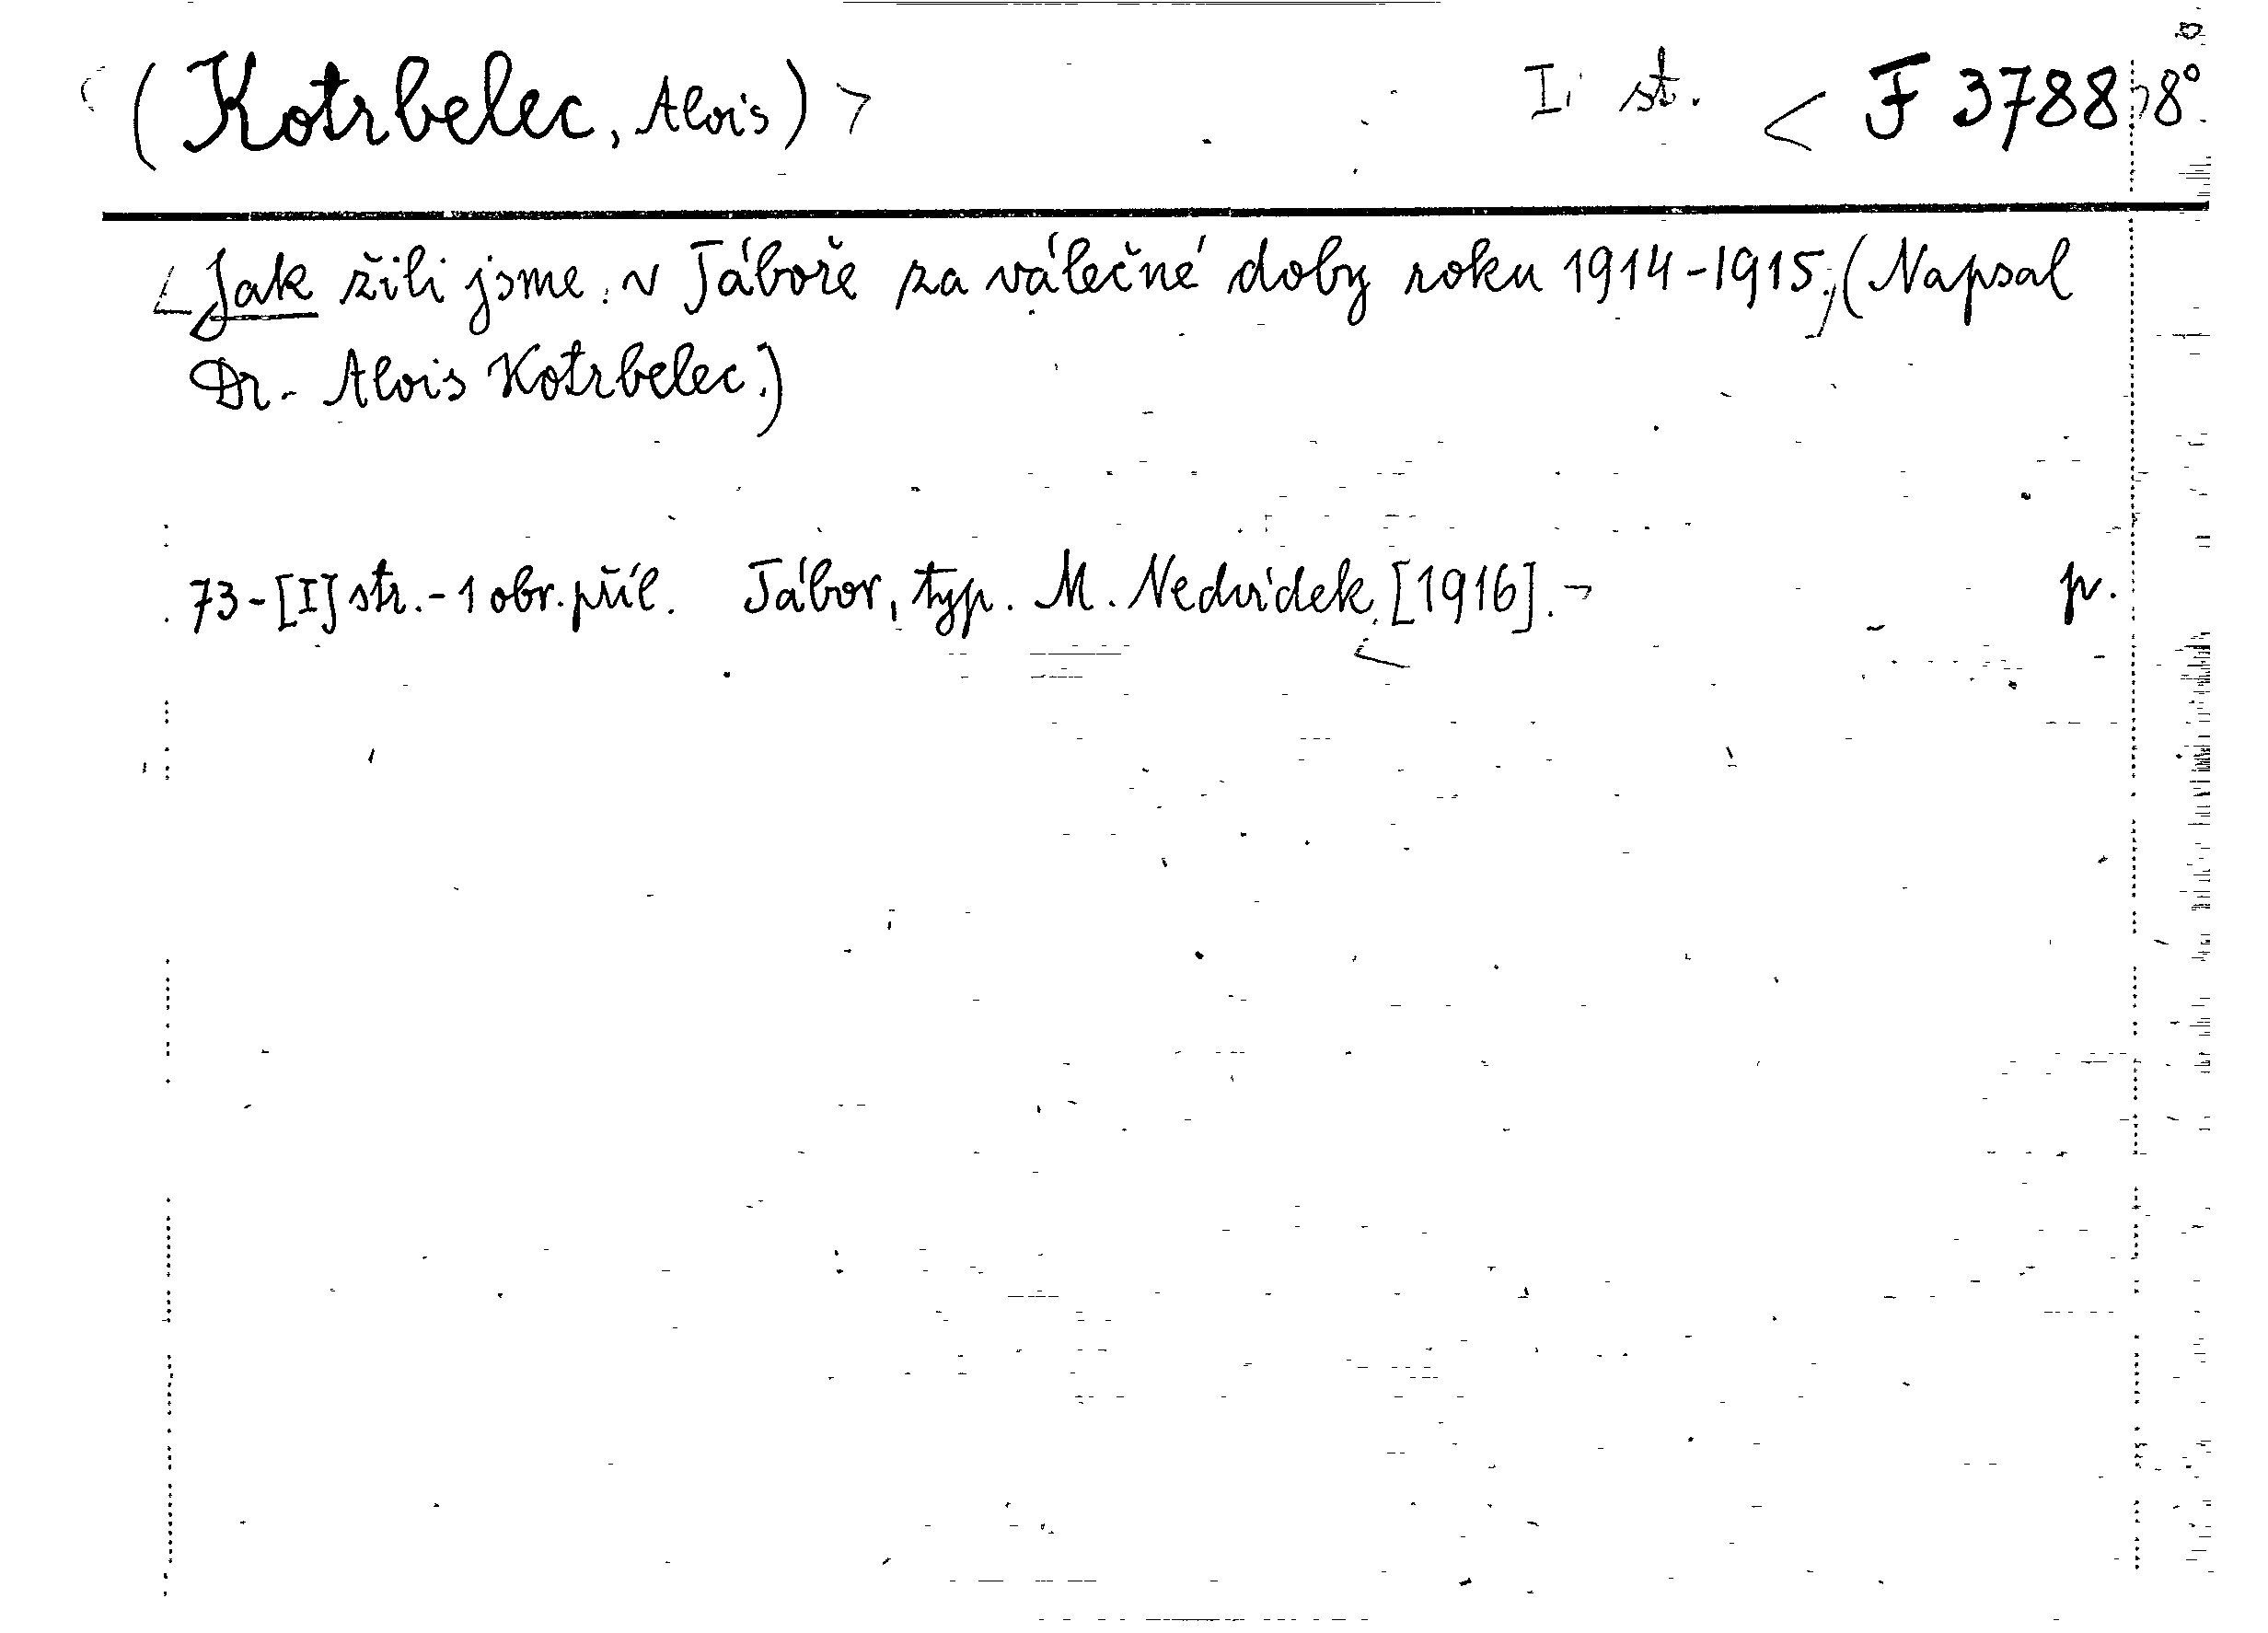 (Kotrbelec, Alois) I. st. F 3788 8°
Jak žili jsme v Táboře za válečné doby roku 1914-1915. (Napsal
Dr. Alois Kotrbelec.)
73-[I] str.-1 obr. příl. Tábor, typ. M. Nedvídek, [1916]. p.